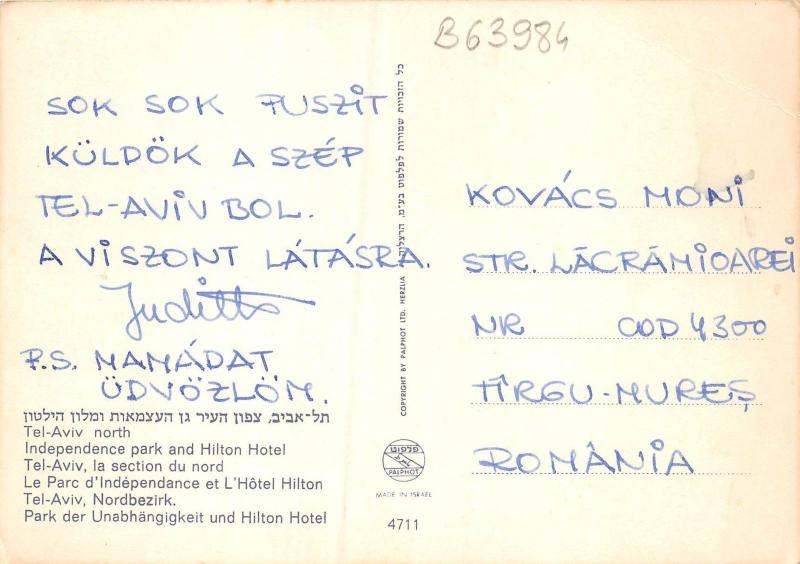 B63984
SOK SOK PUSZIT
KÜLDÖK A SZÉP
TEL-AVIV BOL.
A VISZONT LÁTÁSRA.
Juditka
P.S. MAMÁDAT
ÜDVÖZLÖM.
תל-אביב, צפון העיר גן העצמאות ומלון הילטון
Tel-Aviv north
Independence park and Hilton Hotel
Tel-Aviv, la section du nord
Le Parc d'Indépendance et L'Hôtel Hilton
Tel-Aviv, Nordbezirk.
Park der Unabhängigkeit und Hilton Hotel
כל הזכויות שמורות לפלפוט בע"מ, הרצליה
COPYRIGHT BY PALPHOT LTD. HERZLIA
פלפוט
PALPHOT
MADE IN ISRAEL
4711
KOVÁCS MONI
STR. LĂCRĂMIOAREI
NR COD 4300
TÎRGU-MUREȘ
ROMÂNIA